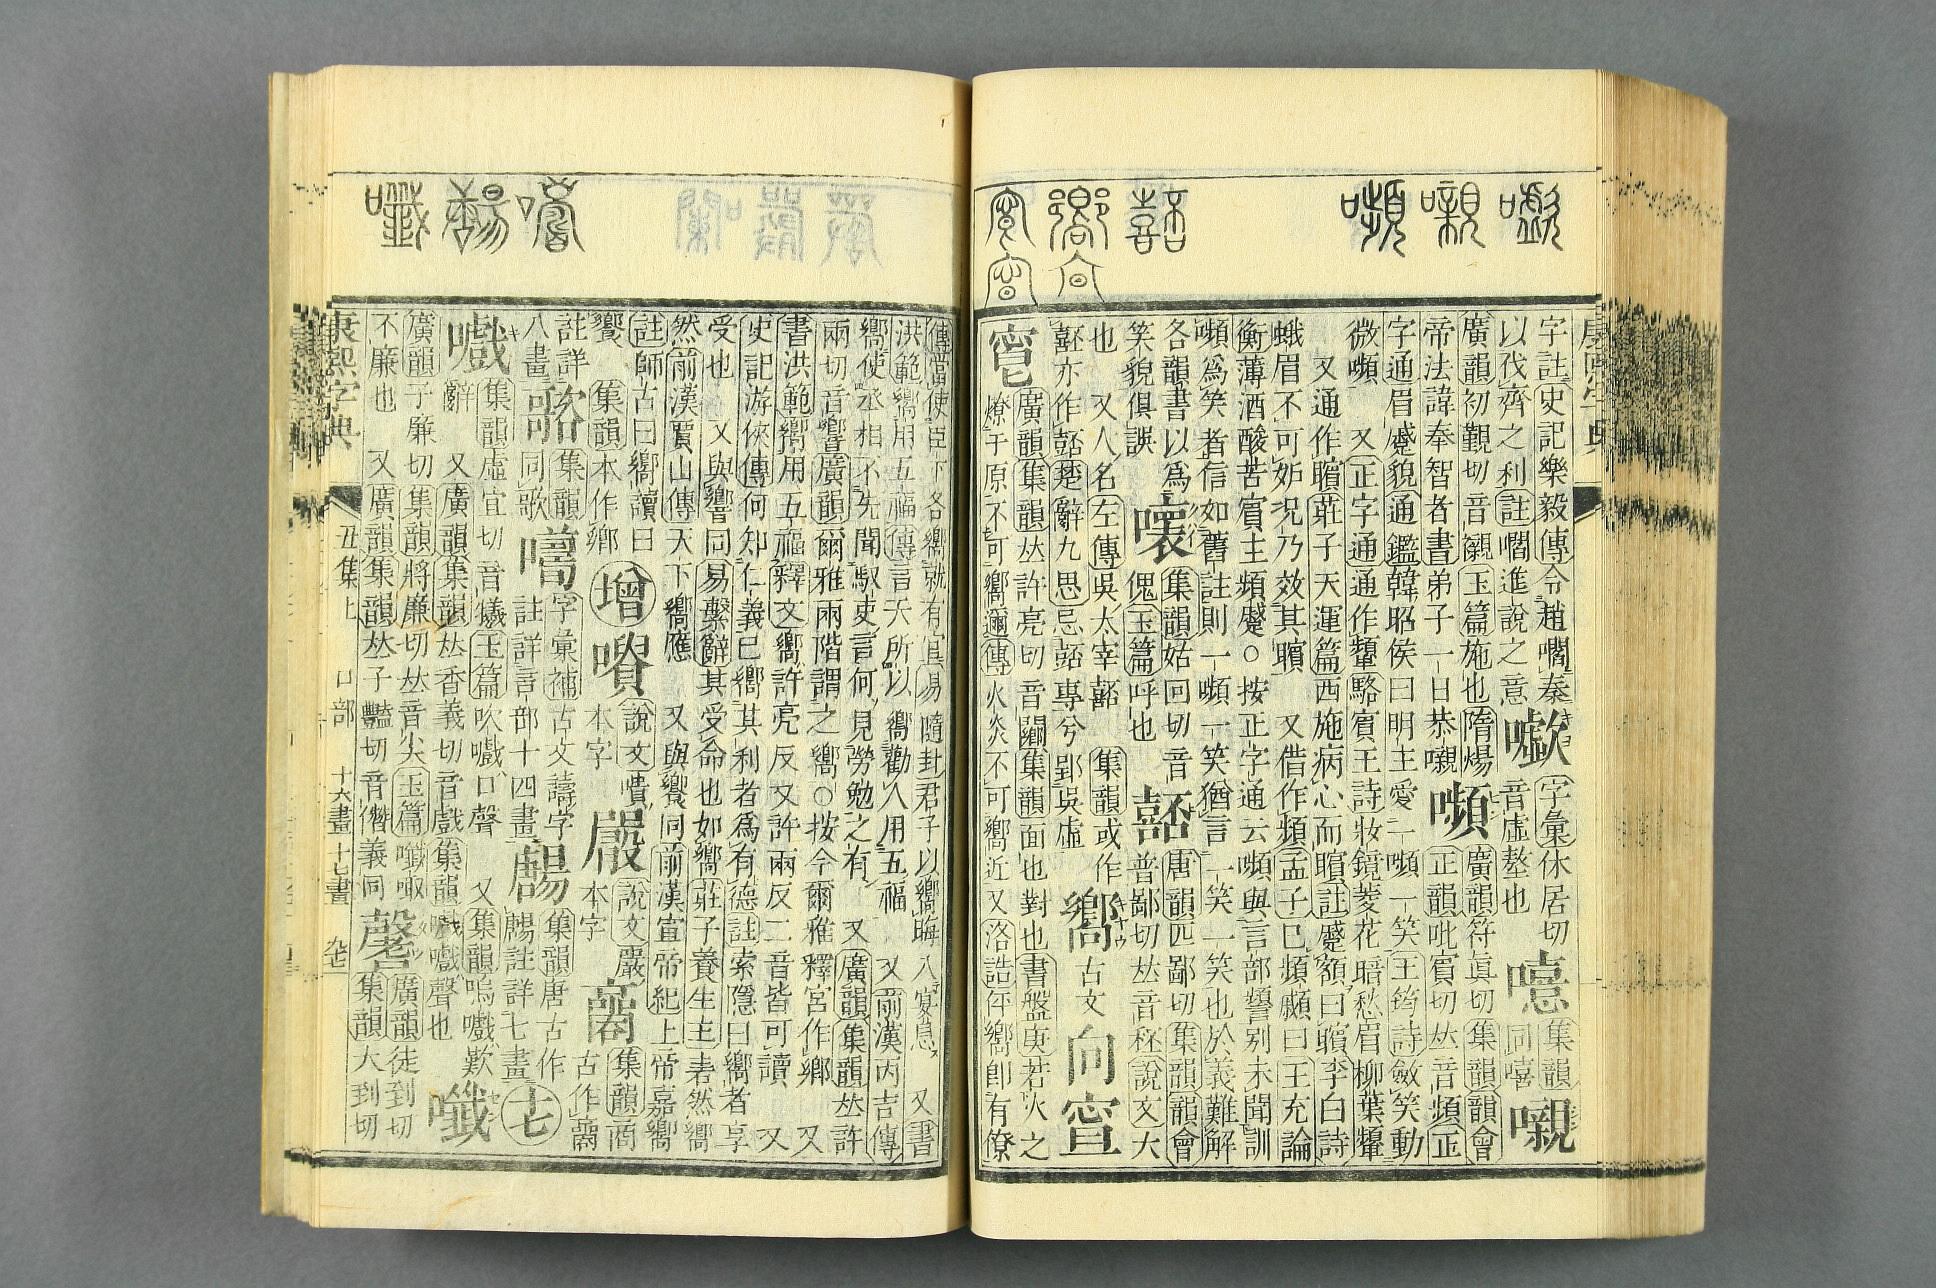 康熙字典
字註史記樂毅傳令趙嚪秦
以伐齊之利註嚪進說之意
字彙休居切
音虛嗸也
集韻
同嘻
嚫
廣韻初覲切音櫬玉篇施也隋煬
帝法諱奉智者書弟子一日恭嚫
嚬
廣韻符眞切集韻韻會
正韻毗賓切𠀤音頻正
字通眉蹙貌通鑑韓昭侯曰明主愛一嚬一笑王筠詩斂笑動
微嚬 又正字通通作顰駱賓王詩妝鏡菱花暗愁眉柳葉顰
又通作矉莊子天運篇西施病心而矉註蹙額曰矉李白詩
蛾眉不可妒況乃效其矉 又借作頻孟子已頻顣曰王充論
衡薄酒酸苦賓主頻蹙○按正字通云嚬與言部別未聞訓
嚬爲笑者信如舊註則一嚬一笑猶言一笑一笑也於義難解
各韻書以爲
笑貌俱誤
集韻姑回切音
傀玉篇呼也
嚭
唐韻匹鄙切集韻韻會
普鄙切𠀤音秠說文大
也 又人名左傳吳太宰嚭 集韻或作
噽亦作嚭楚辭九思忌嚭專兮郢吳虛
嚮
古文
向
廣韻集韻𠀤許亮切音集韻面也對也書盤庚若火之
燎于原不可嚮邇傳火炎不可嚮近又洛誥伻嚮卽有僚
傳當使臣下各嚮就有官易隨卦君子以嚮晦入宴息 又書
洪範嚮用五福傳言天所以嚮勸人用五福 又前漢丙吉傳
嚮使丞相不先聞馭吏言何見勞勉之有 又廣韻集韻𠀤許
兩切音響廣韻爾雅兩階謂之嚮○按今爾雅釋宮作鄉 又
書洪範嚮用五福釋文嚮許亮反又許兩反二音皆可讀 又
史記游俠傳何知仁義已嚮其利者爲有德註索隱曰嚮者享
受也 又與響同易繫辭其受命也如嚮莊子養生主砉然嚮
然前漢賈山傳天下嚮應 又與饗同前漢宣帝紀上帝嘉嚮
註師古曰嚮讀曰
饗 集韻本作鄉
增
說文
本字
說文嚴
本字
集韻商
古作
註詳
八畫
集韻
同歌
字彙補古文譸字
註詳言部十四畫
集韻唐古作
註詳七畫
十七
嚱
集韻虛宜切音犧玉篇吹嚱口聲 又集韻嗚嚱歎
辭 又廣韻集韻𠀤香義切音戲集韻嚱嚱聲也
嚵
廣韻子廉切集韻將廉切𠀤音尖玉篇
不廉也 又廣韻集韻𠀤子豔切音僭義同
廣韻徒到切
集韻大到切
康熙字典
丑集上 口部 十六畫 十七畫